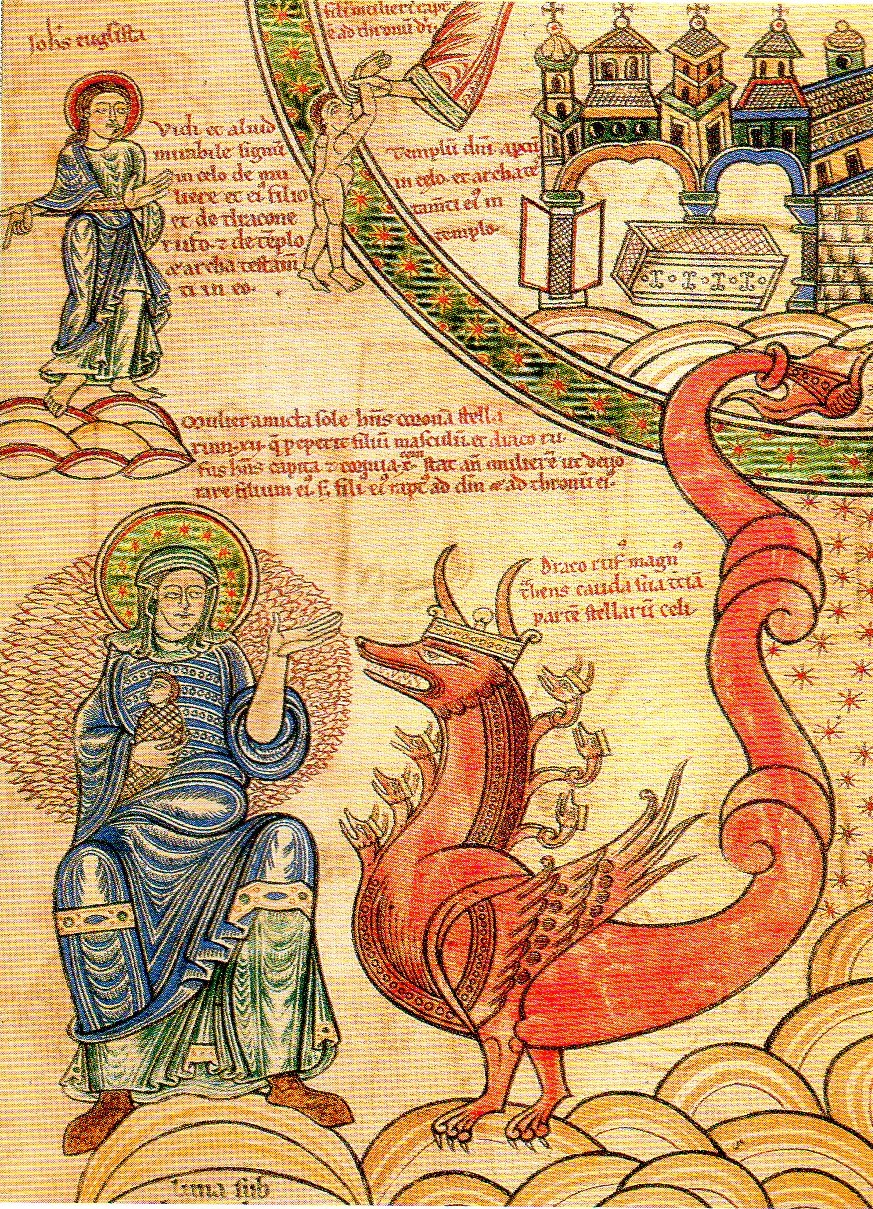 Johs eugłista
filii mulieris rapt
e ad thronū di
Vidi et aliud
mirabile signū
in celo de mu
liere et ei filio
et de dracone
rufo ⁊ de tēplo
et archa testam
ti in eo.
Templū dm̄i aptū
in celo. et archa te
tam̄ti ei in
templo.
mulier amicta sole hn̄s coronā stella
rum xii. q̄ peperit filiū masculū. et draco ru
fus hn̄s capita ⁊ cornua x. stat añ mulierē ut deuo
raret filium ei. s. fili ei rapt ad dm̄ et ad thronū ei.
Draco ruf magn
thens cauda sua tciā
partē stellarū celi.
luna sub